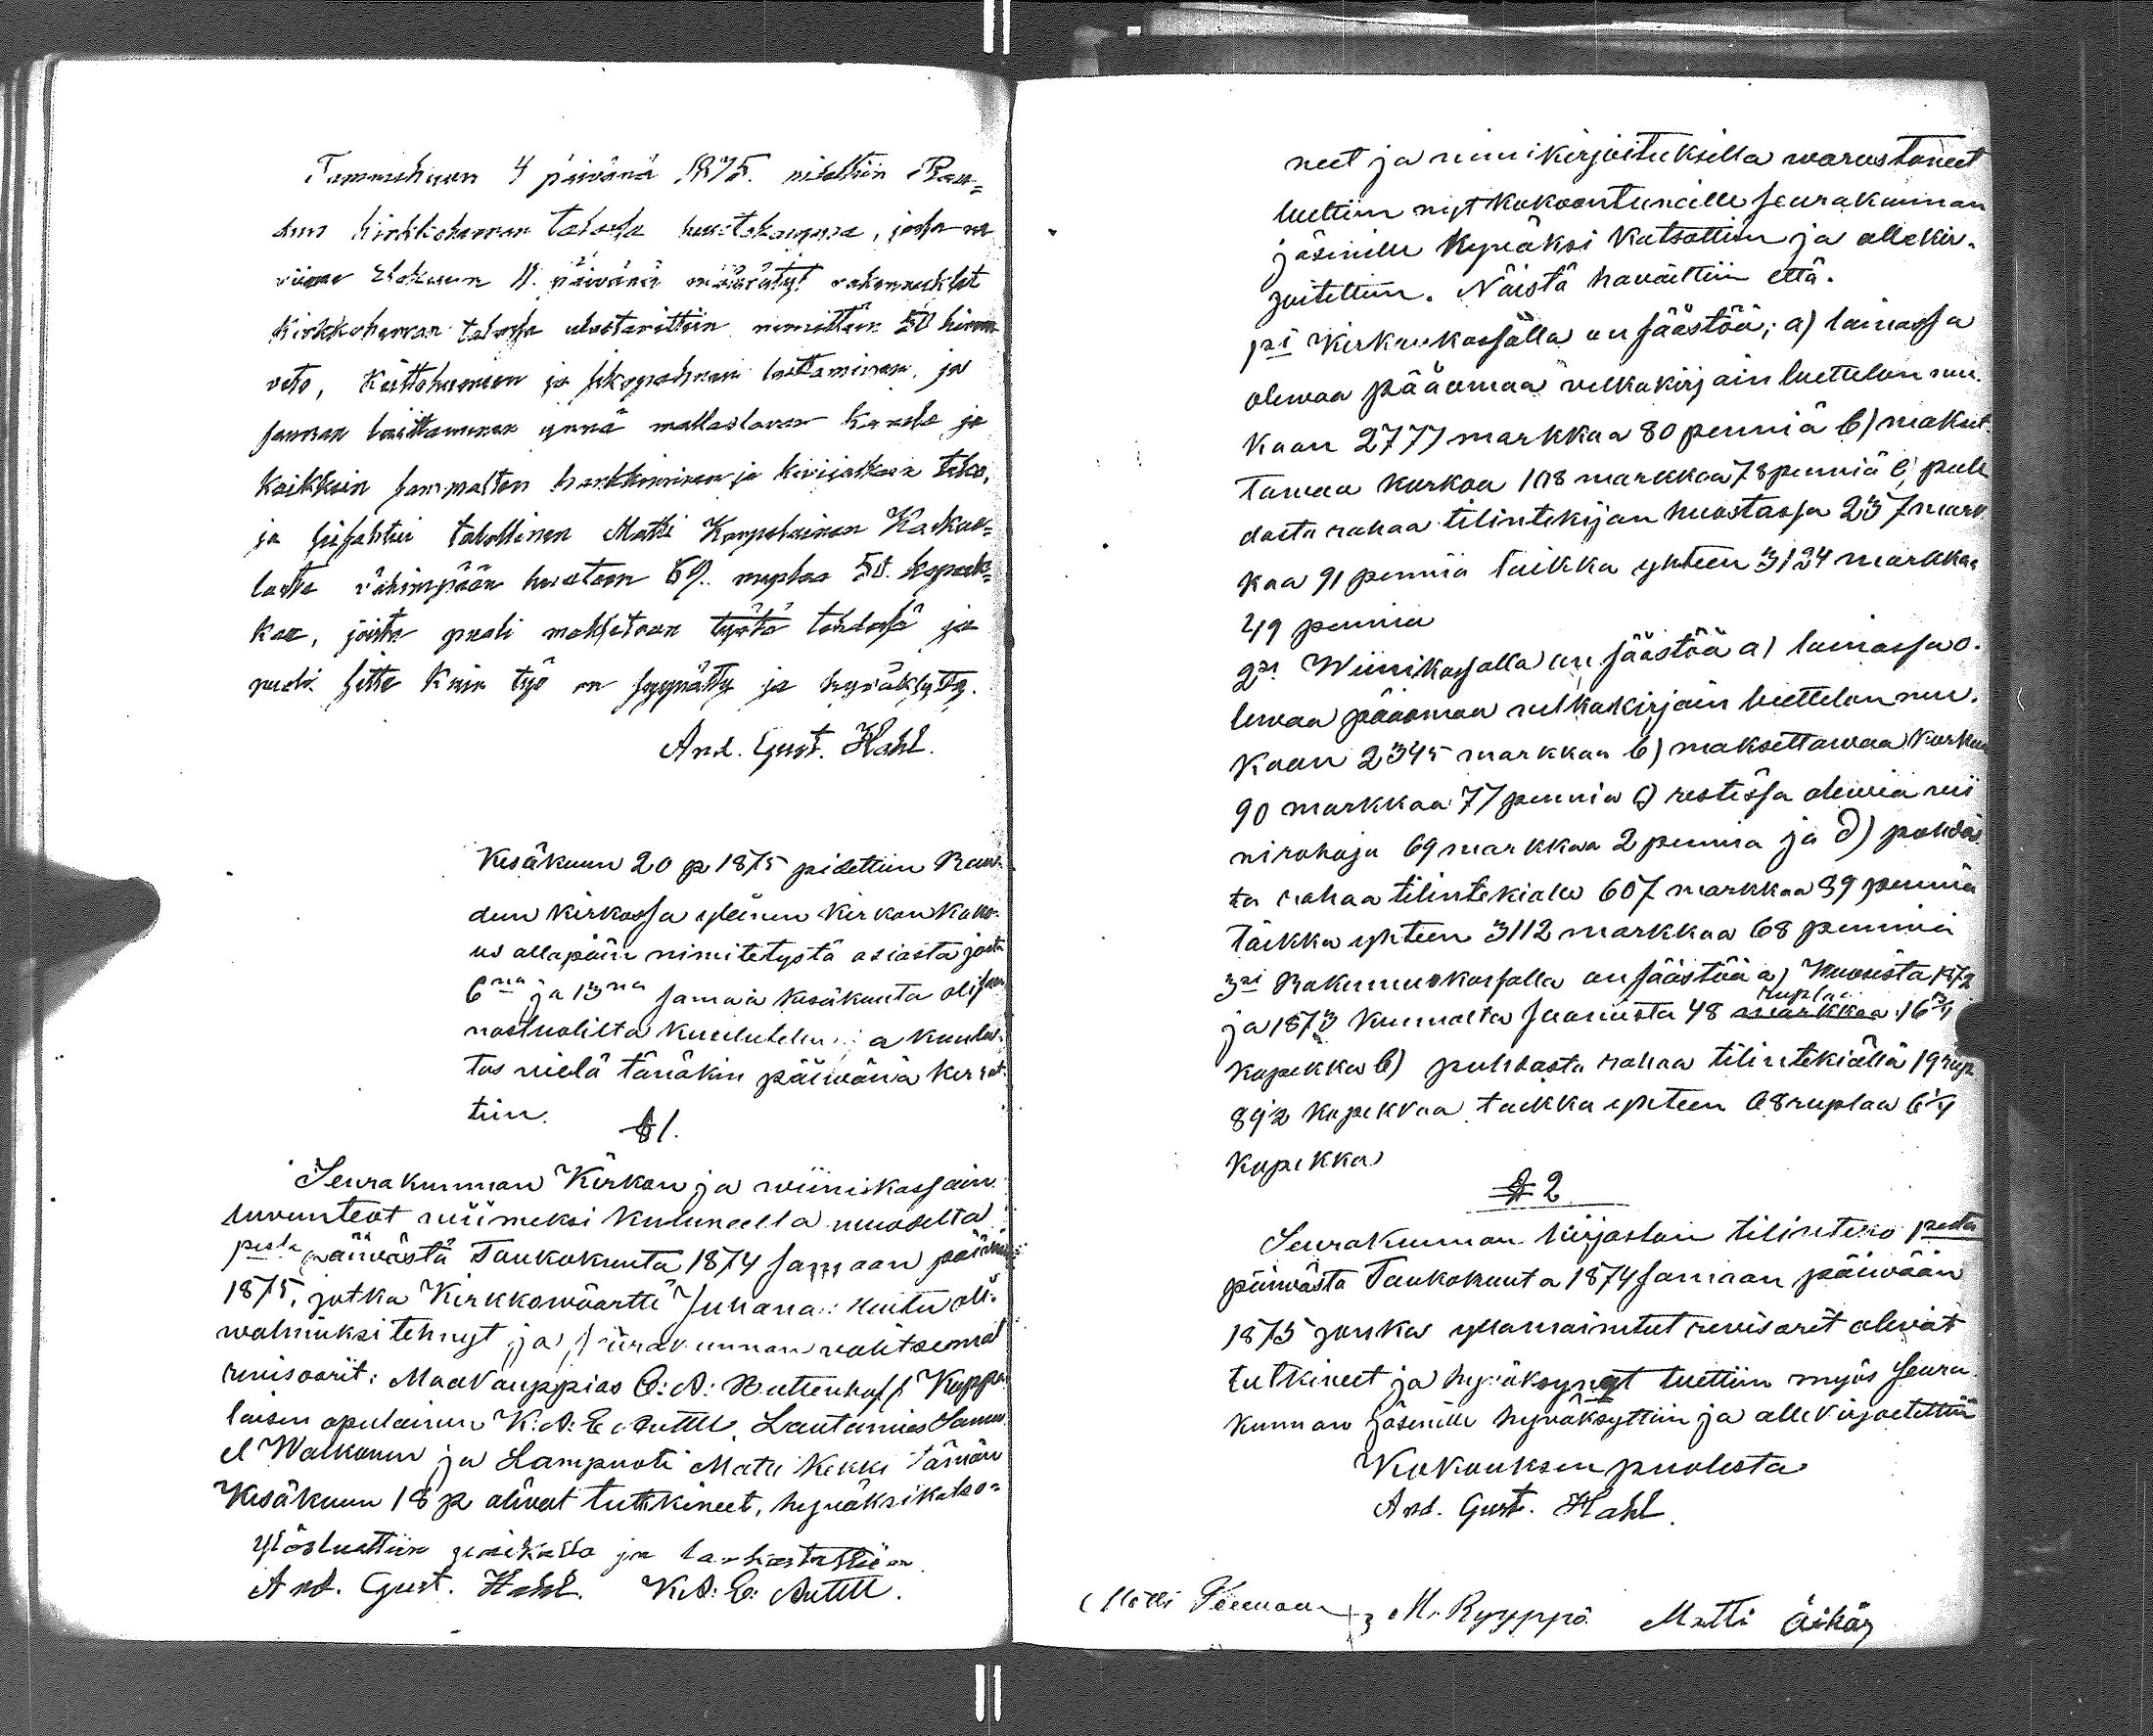 Tammikuun 4 päivänä 1875. pidettiin Rau=
dun kirkkoherran talossa huutokauppa, jossa ne
viime Elokuun päivänä määrätyt rakennukset
Kirkkoherran talossa ulostarittiin nimittäin 50 hirren
veto, Keittohuoneen ja laittaminen, ja
saunan laittaminen ynnä
kaikkein sammalten hankkiminen ja kivijalkain teko,
ja talollinen Matti Karppalainen
vähimpään huutoon 69. ruplaa 50. kopeek=
kaa, joista puoli maksetaan työtä tehdessä ja
puoli sitte kuin työ on syynätty ja hyväksytty.
And. Gust. Hahl.
Kesäkuun 20 p 1875 pidettiin Rau=
dun kirkossa yleinen kirkon koko=
us allapäin nimitetystä asiasta josta
6na ja 13na samaa kesäkuuta oli saar
nastuolilta kuulutettu ja kuulu=
tus vielä tänäkin päiwänä kerrat=
tiin.
§ 1.
Seurakunnan Kirkon ja wiinikassain
luvunteot viimeksi kuluneelta vuodelta
pstä päiwästä Toukokuuta 1874 samaan päivään
1875, jotka Kirkkowäärtti Juhana oli
walmiiksi tehnyt ja seurakunnan valitsemat
revisoorit: Maakauppias A: Kappa
laisen apulainen K: A: E: Antell, Lautamies Samu
el Walkonen ja Lampuoti Matti Kekki tämän
Kesäkuun 18 p olivat tutkineet, hyväksi katso=
Ylösluettiin ja tarkastettiin
And. Gust. Hahl. K: A: E: Antell.
neet ja nimikirjoituksilla warustaneet
luettiin nyt kokoontuneille seurakunnan
jäsenille hyväksi katsottiin ja allekir=
joitettiin. Näistä havaittiin että.
1si Kirkonkassalla on säästöä; a) lainassa
olewaa pääomaa velkakirjain luettelon mu=
kaan 2777 markkaa 80 penniä b) makset
tawaa korkoa 108 markkaa 78 penniä c) puh
dasta rahaa tilintekijän huostassa 237 mark
kaa 91 penniä taikka yhteen 3124 markkaa
49 penniä
2si Wiinikassalla on säästöä a) lainassa o=
lewaa pääomaa velkakirjain luettelon mu=
kaan 2345 markkaa b) maksettawaa korkoa
90 markkaa 77 penniä c) restissä olewia vii
nirahoja 69 markkaa 2 penniä ja d) puhdas
ta rahaa tilintekiällä 607 markkaa 89 penniä
taikka yhteen 3112 markkaa 68 penniä
3si Rakennuskassalla on säästöä a) Vuosista 1872
ja 1873 kummalta saamista 48 markkaa ruplaa 16¾
kopekkaa b) puhdasta rahaa tilintekiällä 19 rup
89½ kopekkaa taikka yhteen 68 ruplaa 6¼
kopekkaa
§ 2
Seurakunnan kirjaston tilinteko pstä
päiwästä Toukokuuta 1874 samaan päiwään
1875 jonka yllämainitut revisorit olivat
tutkineet ja hyväksynyt luettiin myös seura
kunnan jäsenille hyväksyttiin ja allekirjoitettiin
Kokouksen puolesta
And. Gust. Hahl.
Matti M. Ryyppö Matti Äikäs